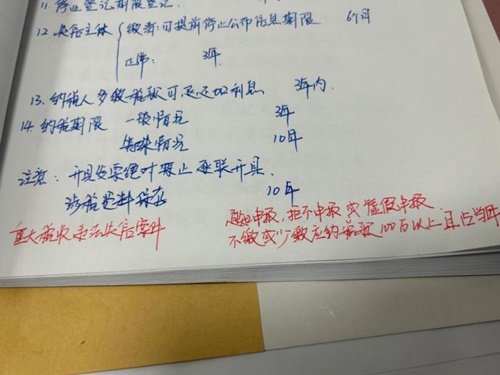 11. 停止登记期限登记.
12. 失信主体 缴清可提前停止公布信息期限 6个月
正常: 3年
13. 纳税人多缴税款可退还加利息 3年内.
14. 纳税期限 一般情况 3年
特殊情况 10年
注意: 开具发票时禁止 联开具.
涉税资料保存 10年
重大税收违法失信案件
申报, 拒不申报或虚假申报.
不缴或少缴应纳税款100万以上且占当年